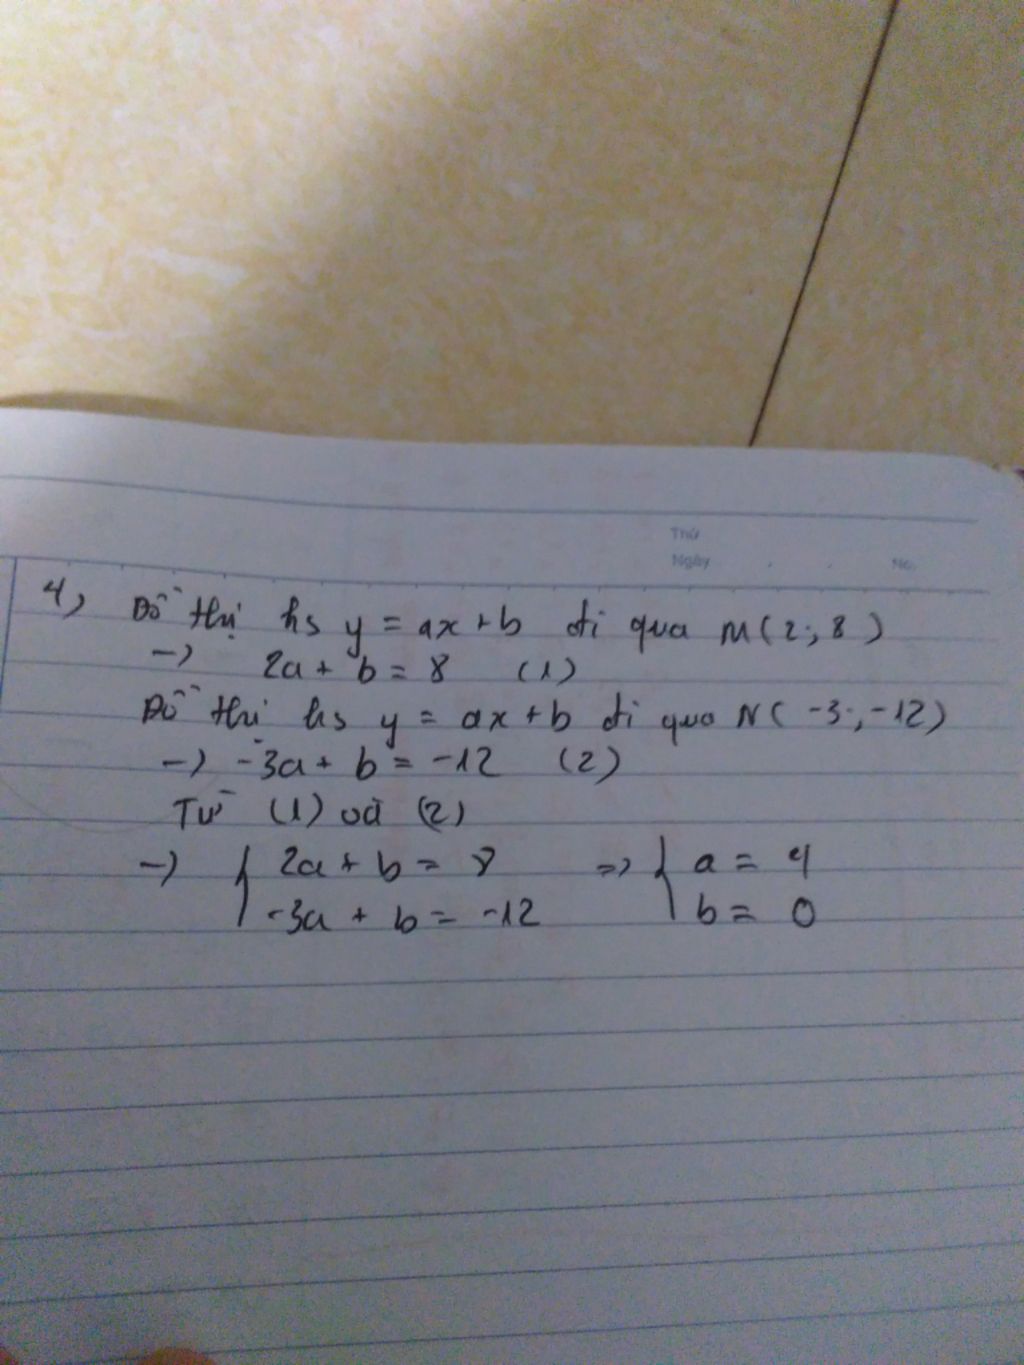 Thứ
Ngày . . No.
4, Đồ thị hs y = ax + b đi qua M(2; 8)
-> 2a + b = 8 (1)
Đồ thị hs y = ax + b đi qua N(-3; -12)
-> -3a + b = -12 (2)
Từ (1) và (2)
-> { 2a + b = 8 => { a = 4
-3a + b = -12 b = 0